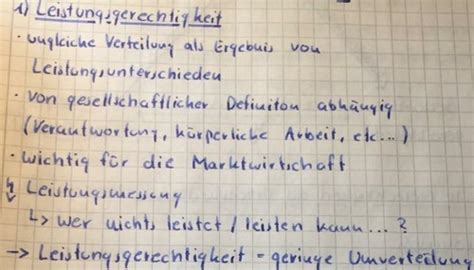 1) Leistungsgerechtigkeit
· ungleiche Verteilung als Ergebnis von
Leistungsunterschieden
· von gesellschaftlicher Definiton abhängig
(Verantwortung, körperliche Arbeit, etc...)
· wichtig für die Marktwirtschaft
↯ Leistungsmessung
↳ wer nichts leistet / leisten kann...?
→ Leistungsgerechtigkeit = geringe Umverteilung